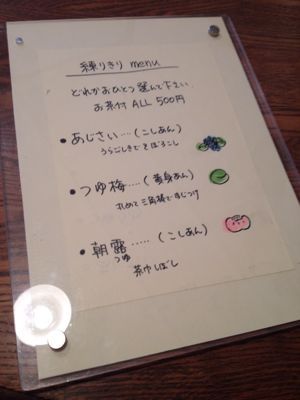 練りきり menu
どれかおひとつ選んで下さい
お茶付 ALL 500円
● あじさい…(こしあん)
うらごしきできぼろこし
● つゆ梅……(黄身あん)
丸めて三角棒ですじつけ
● 朝露……(こしあん)
つゆ
茶巾しぼし